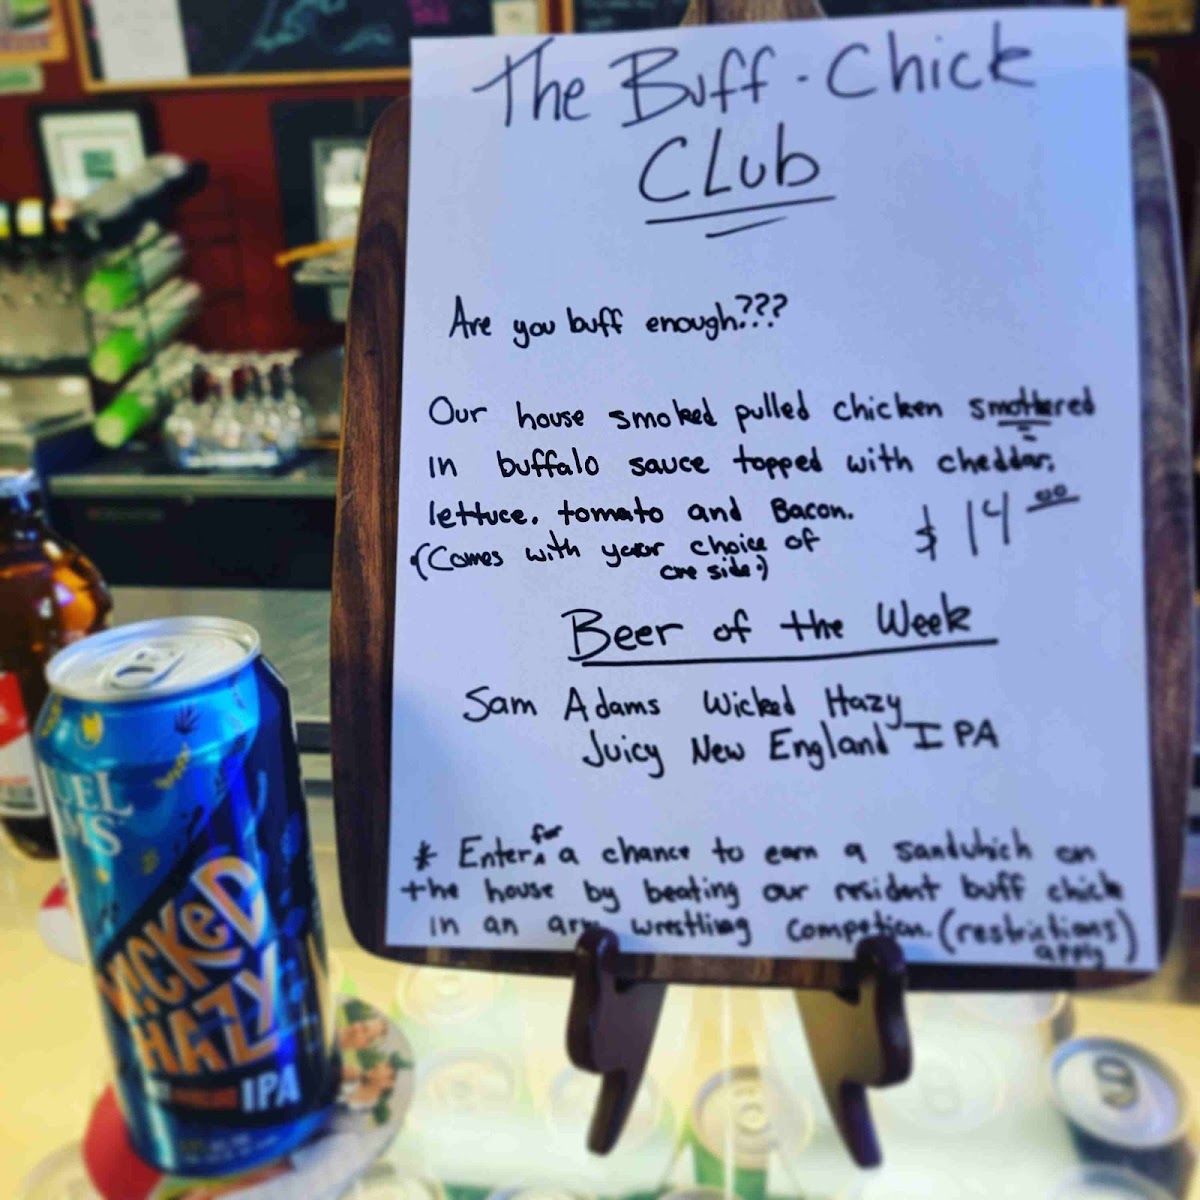 The Buff-Chick
Club
Are you buff enough???
Our house smoked pulled chicken smothered
in buffalo sauce topped with cheddar,
lettuce, tomato and Bacon.
$14.00
(Comes with your choice of
one side:)
Beer of the Week
Sam Adams Wicked Hazy
Juicy New England IPA
* Enter for a chance to earn a sandwhich on
the house by beating our resident buff chick
in an arm wrestling compention. (restrictions
apply)
WICKED
HAZY
IPA